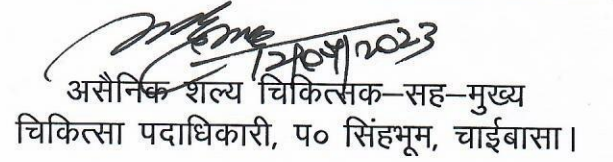 12/04/2023
असैनिक शल्य चिकित्सक–सह–मुख्य
चिकित्सा पदाधिकारी, प० सिंहभूम, चाईबासा।